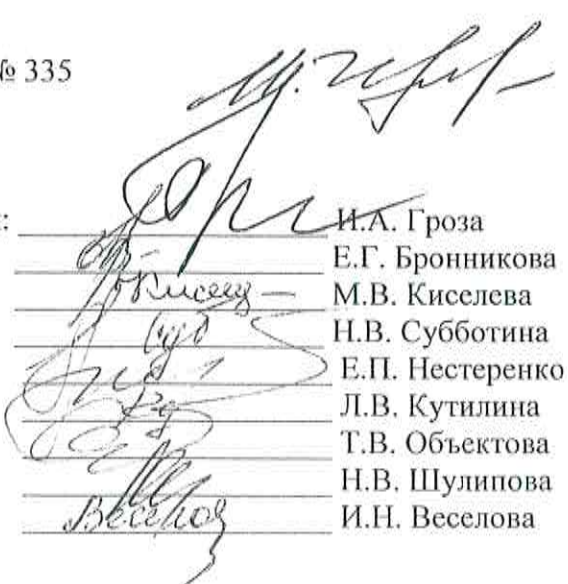 № 335
:
И.А. Гроза
Е.Г. Бронникова
Киселе
М.В. Киселева
Суб
Н.В. Субботина
Е.П. Нестеренко
Л.В. Кутилина
Т.В. Объектова
Н.В. Шулипова
Веселов
И.Н. Веселова